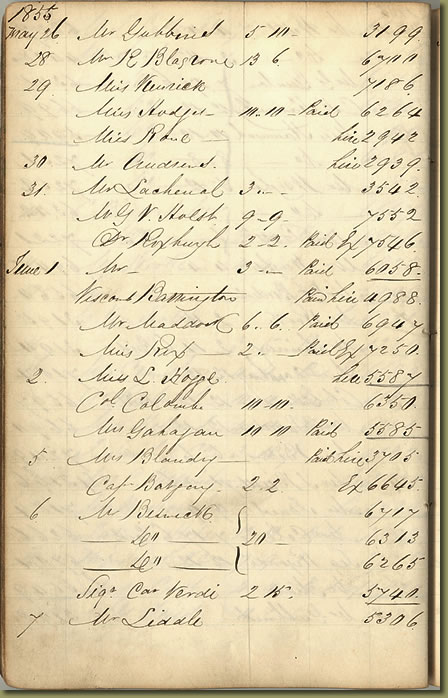 1855
May 26 Mr Gubbins 5-10- 3199.
28 Mr R Blagrove 13 6 6700
29 Miss Kenrick 7186
Miss Hodges- 10.10- Paid 6264
Miss Rowe — hire 2942
30 Mr hire 2939.
31. Mr Lachenal 3.-- 3542.
Mr G V. Holst 9-9- 7552
Dr Roxburgh 2-2. Paid Ex 7546
June 1 Mr- 3-.- Paid 6058.
Viscount Barrington Paid hire 4988.
Mr Maddock 6.6. Paid 6947
Miss Rix— 2.— Paid Ex 7250.
2. Miss L. hire 5587
Col Colomb. 10-10- 6350.
Mrs Gahagan 10 10 Paid 5585
5 Mrs Blandy — Paid hire 3705
Cap 2.2. Ex 6645.
6 Mr 6717
— Do — 20 — 6313
— Do — 6265
Sigr Car Verdi 2 15. 5740.
7 Mr Liddle 5306